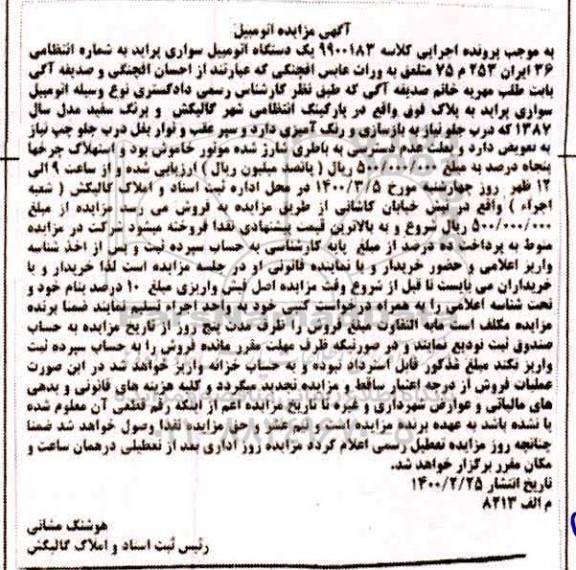 آگهی مزایده اتومبیل
به موجب پرونده اجرایی کلاسه ۹۹۰۰۱۸۳ یک دستگاه اتومبیل سواری پراید به شماره انتظامی
۳۶ ایران ۲۵۳ م ۷۵ متعلق به وراث عابس افچنگی که عبارتند از احسان افچنگی و صدیقه آگی
بابت طلب مهریه خانم صدیقه آگی که طبق نظر کارشناس رسمی دادگستری نوع وسیله اتومبیل
سواری پراید به پلاک فوق واقع در پارکینگ انتظامی شهر گالیکش و برنگ سفید مدل سال
۱۳۸۷ که درب جلو نیاز به بازسازی و رنگ آمیزی دارد و سپر عقب و نوار بغل درب جلو چپ نیاز
به تعویض دارد و بعلت عدم دسترسی به باطری شارژ شده موتور خاموش بود و استهلاک چرخها
پنجاه درصد به مبلغ ریال ( پانصد میلیون ریال ) ارزیابی شده و از ساعت ۹ الی
۱۲ ظهر روز چهارشنبه مورخ ۱۴۰۰/۳/۵ در محل اداره ثبت اسناد و املاک گالیکش ( شعبه
اجراء ) واقع در نبش خیابان کاشانی از طریق مزایده به فروش می رسد مزایده از مبلغ
۵۰۰/۰۰۰/۰۰۰ ریال شروع و به بالاترین قیمت پیشنهادی نقدا فروخته میشود شرکت در مزایده
منوط به پرداخت ده درصد از مبلغ پایه کارشناسی به حساب سپرده ثبت و پس از اخذ شناسه
واریز اعلامی و حضور خریدار و یا نماینده قانونی او در جلسه مزایده است لذا خریدار و یا
خریداران می بایست تا قبل از شروع وقت مزایده اصل فیش واریزی مبلغ ۱۰ درصد بنام خود و
تحت شناسه اعلامی را به همراه درخواست کتبی خود به واحد اجراء تسلیم نمایند ضمنا برنده
مزایده مکلف است مابه التفاوت مبلغ فروش را ظرف مدت پنج روز از تاریخ مزایده به حساب
صندوق ثبت تودیع نمایند و در صورتیکه ظرف مهلت مقرر مانده فروش را به حساب سپرده ثبت
واریز نکند مبلغ مذکور قابل استرداد نبوده و به حساب خزانه واریز خواهد شد در این صورت
عملیات فروش از درجه اعتبار ساقط و مزایده تجدید میگردد و کلیه هزینه های قانونی و بدهی
های مالیاتی و عوارض شهرداری و غیره تا تاریخ مزایده اعم از اینکه رقم قطعی آن معلوم شده
یا نشده باشد به عهده برنده مزایده است و نیم عشر و حق مزایده نقدا وصول خواهد شد ضمنا
چنانچه روز مزایده تعطیل رسمی اعلام گردد مزایده روز اداری بعد از تعطیلی درهمان ساعت و
مکان مقرر برگزار خواهد شد.
تاریخ انتشار ۱۴۰۰/۲/۲۵
م الف ۸۲۱۳
هوشنگ مشانی
رئیس ثبت اسناد و املاک گالیکش